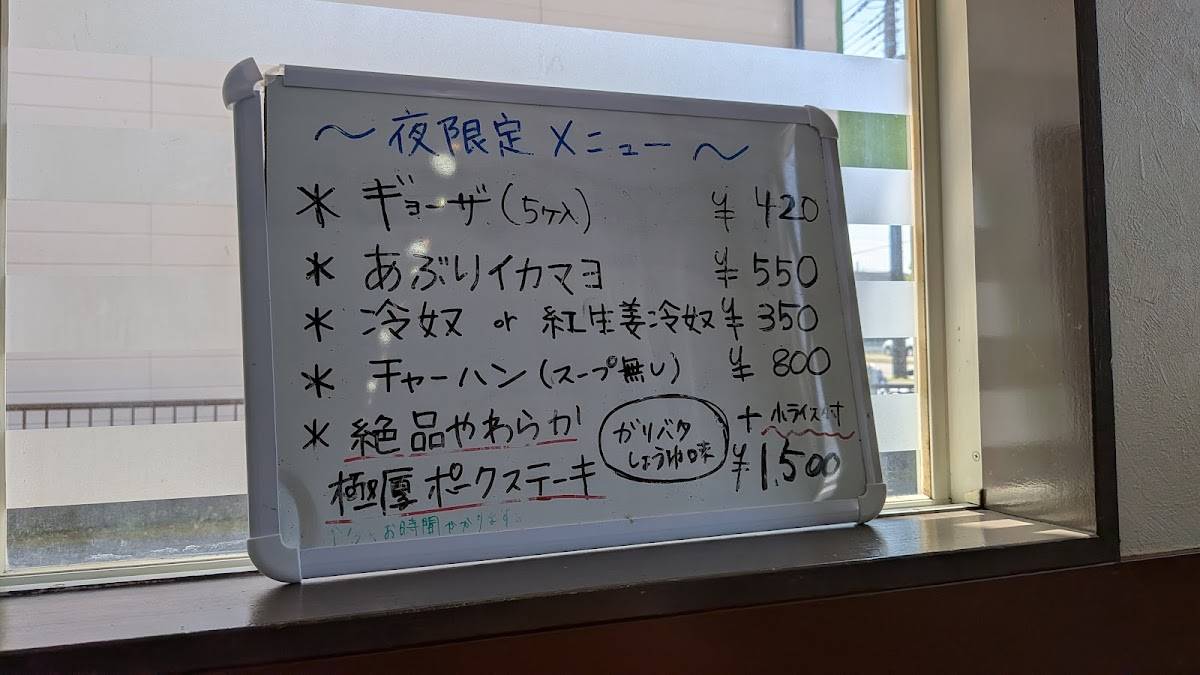 ～夜限定メニュー～
＊ ギョーザ(5ヶ入) ¥420
＊ あぶりイカマヨ ¥550
＊ 冷奴 or 紅生姜冷奴 ¥350
＊ チャーハン(スープ無し) ¥800
＊ 絶品やわらか
極厚ポークステーキ
ガリバタ
しょうゆ味
＋小ライス付
¥1,500
お時間かかります。